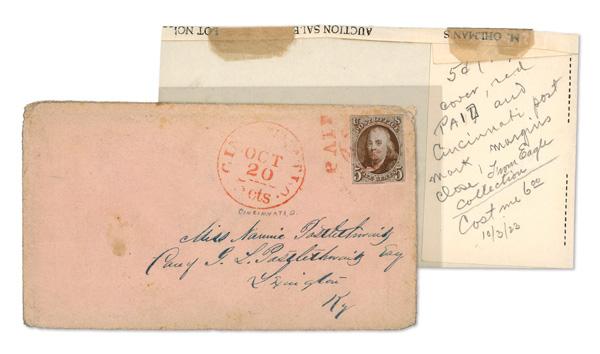 LOT NO.
AUCTION SALE
M. OHLMAN'S
5¢
cover, red
PAID and
Cincinnati post
mark, margins
close, From Eagle
collection
Cost me 6.00
10/3/23
CINCINNATI.O.
OCT
20
5cts.
CINCINNATI, O.
PAID
POST OFFICE
5 FIVE CENTS 5
Miss Nannie Postlethwait
Care of G. L. Postlethwait Esq
Lexington
Ky